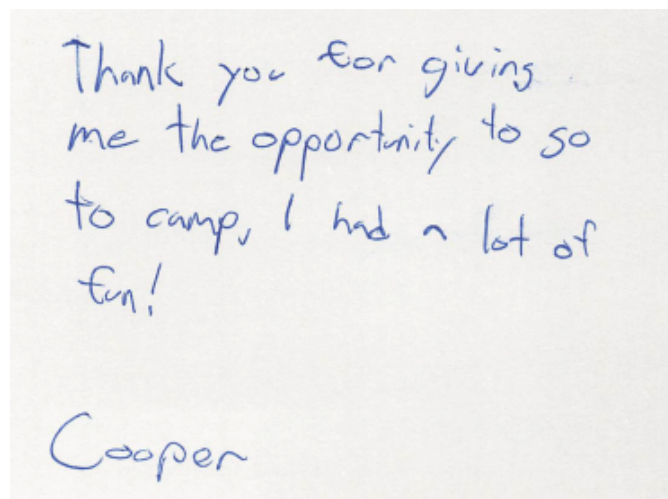 Thank you for giving
me the opportunity to go
to camp, I had a lot of
fun!
Cooper